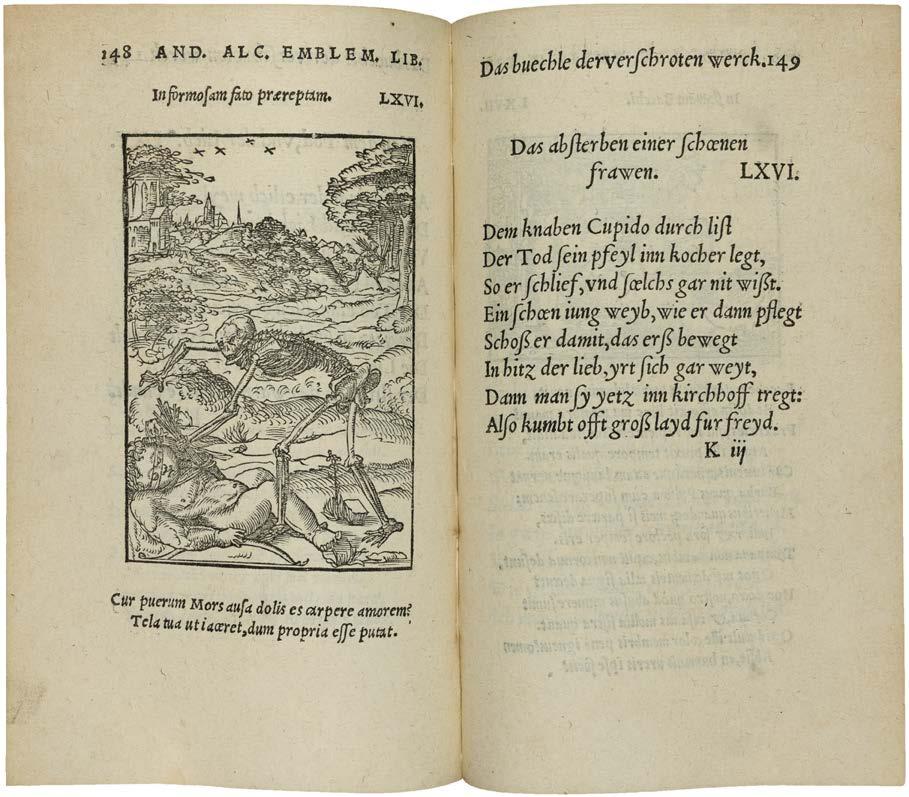 148 AND. ALC. EMBLEM. LIB.
In formosam fato præreptam. LXVI.
Cur puerum Mors ausa dolis es carpere amorem?
Tela tua ut iaceret, dum propria esse putat.
Das buechle der verschroten werck. 149
Das absterben einer schœnen
frawen. LXVI.
Dem knaben Cupido durch list
Der Tod sein pfeyl inn kocher legt,
So er schlief, vnd sœlchs gar nit wißt.
Ein schœn iung weyb, wie er dann pflegt
Schoß er damit, das erß bewegt
In hitz der lieb, yrt sich gar weyt,
Dann man sy yetz inn kirchhoff tregt:
Also kumbt offt groß layd fur freyd.
K iij